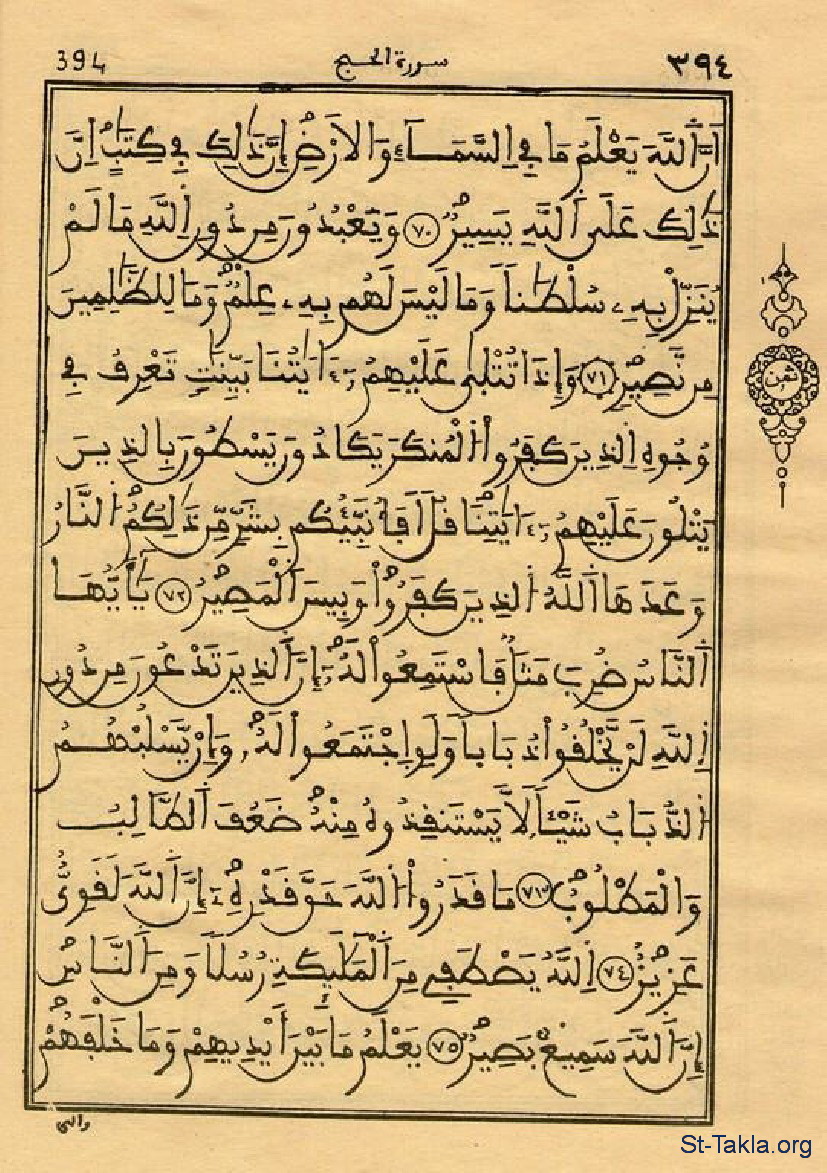 394 سورة الحج ٣٩٤
أَنَّ اَ۬للَّهَ يَعْلَمُ مَا فِے اِ۬لسَّمَآءِ وَالَارْضِۖ إِنَّ ذَٰلِكَ فِے كِتَٰبٍۖ اِنَّ
ذَٰلِكَ عَلَى اَ۬للَّهِ يَسِيرٞۖ ٧٠ وَيَعْبُدُونَ مِن دُونِ اِ۬للَّهِ مَا لَمْ
يُنَزِّلْ بِهِۦ سُلْطَٰناٗ وَمَا لَيْسَ لَهُم بِهِۦ عِلْمٞۖ وَمَا لِلظَّٰلِمِينَ
مِن نَّصِيرٖۖ ٧١ وَإِذَا تُتْلَىٰ عَلَيْهِمُۥٓ ءَايَٰتُنَا بَيِّنَٰتٖ تَعْرِفُ فِے
وُجُوهِ اِ۬لذِينَ كَفَرُواْ اُ۬لْمُنكَرَ يَكَادُونَ يَسْطُونَ بِالذِينَ
يَتْلُونَ عَلَيْهِمُۥٓ ءَايَٰتِنَاۖ قُلَ اَفَأُنَبِّئُكُم بِشَرّٖ مِّن ذَٰلِكُمُۖ اُ۬لنَّارُ
وَعَدَهَا اَ۬للَّهُ اُ۬لذِينَ كَفَرُواْۖ وَبِيسَ اَ۬لْمَصِيرُۖ ٧٢ يَٰٓأَيُّهَا
اَ۬لنَّاسُ ضُرِبَ مَثَلٞ فَاسْتَمِعُواْ لَهُۥٓۖ إِنَّ اَ۬لذِينَ تَدْعُونَ مِن دُونِ
اِ۬للَّهِ لَنْ يَّخْلُقُواْ ذُبَاباٗ وَلَوِ اِ۪جْتَمَعُواْ لَهُۥۖ وَإِنْ يَّسْلُبْهُمُ
اُ۬لذُّبَابُ شَيْـٔاٗ لَّا يَسْتَنقِذُوهُ مِنْهُۖ ضَعُفَ اَ۬لطَّالِبُ
وَالْمَطْلُوبُۖ ٧٣ مَا قَدَرُواْ اُ۬للَّهَ حَقَّ قَدْرِهِۦٓۖ إِنَّ اَ۬للَّهَ لَقَوِيٌّ
عَزِيزٌۖ ٧٤ اِ۬للَّهُ يَصْطَفِے مِنَ اَ۬لْمَلَٰٓئِكَةِ رُسُلاٗ وَمِنَ اَ۬لنَّاسِۖ
إِنَّ اَ۬للَّهَ سَمِيعُۢ بَصِيرٞۖ ٧٥ يَعْلَمُ مَا بَيْنَ أَيْدِيهِمْ وَمَا خَلْفَهُمْۖ
ثمن
والى
St-Takla.org